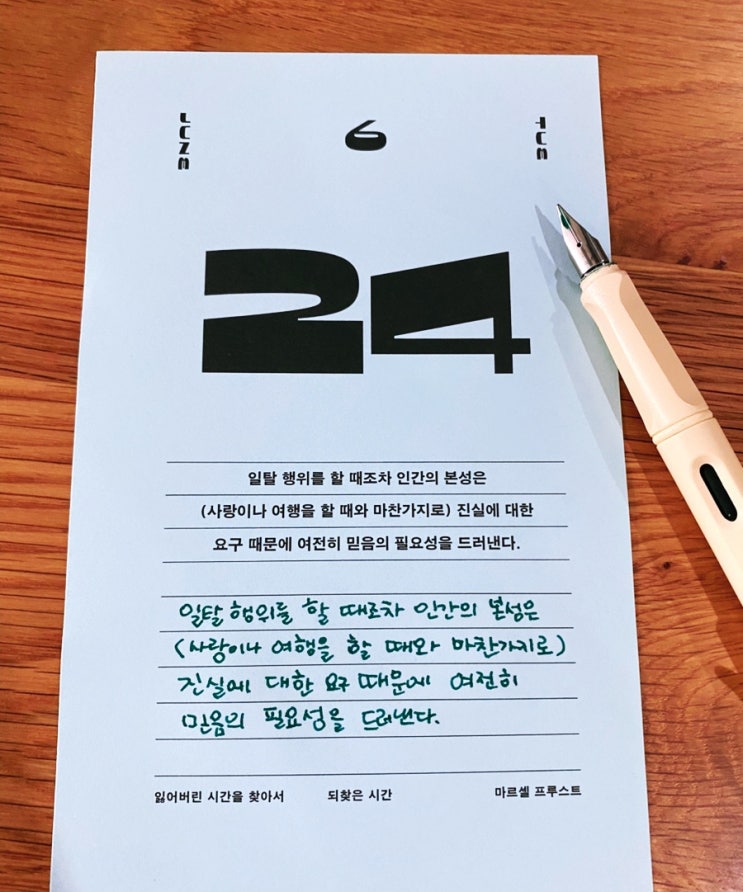 JUNE 6 TUE
24
일탈 행위를 할 때조차 인간의 본성은
(사랑이나 여행을 할 때와 마찬가지로) 진실에 대한
요구 때문에 여전히 믿음의 필요성을 드러낸다.
일탈 행위를 할 때조차 인간의 본성은
(사랑이나 여행을 할 때와 마찬가지로)
진실에 대한 요구 때문에 여전히
믿음의 필요성을 드러낸다.
잃어버린 시간을 찾아서 되찾은 시간 마르셀 프루스트